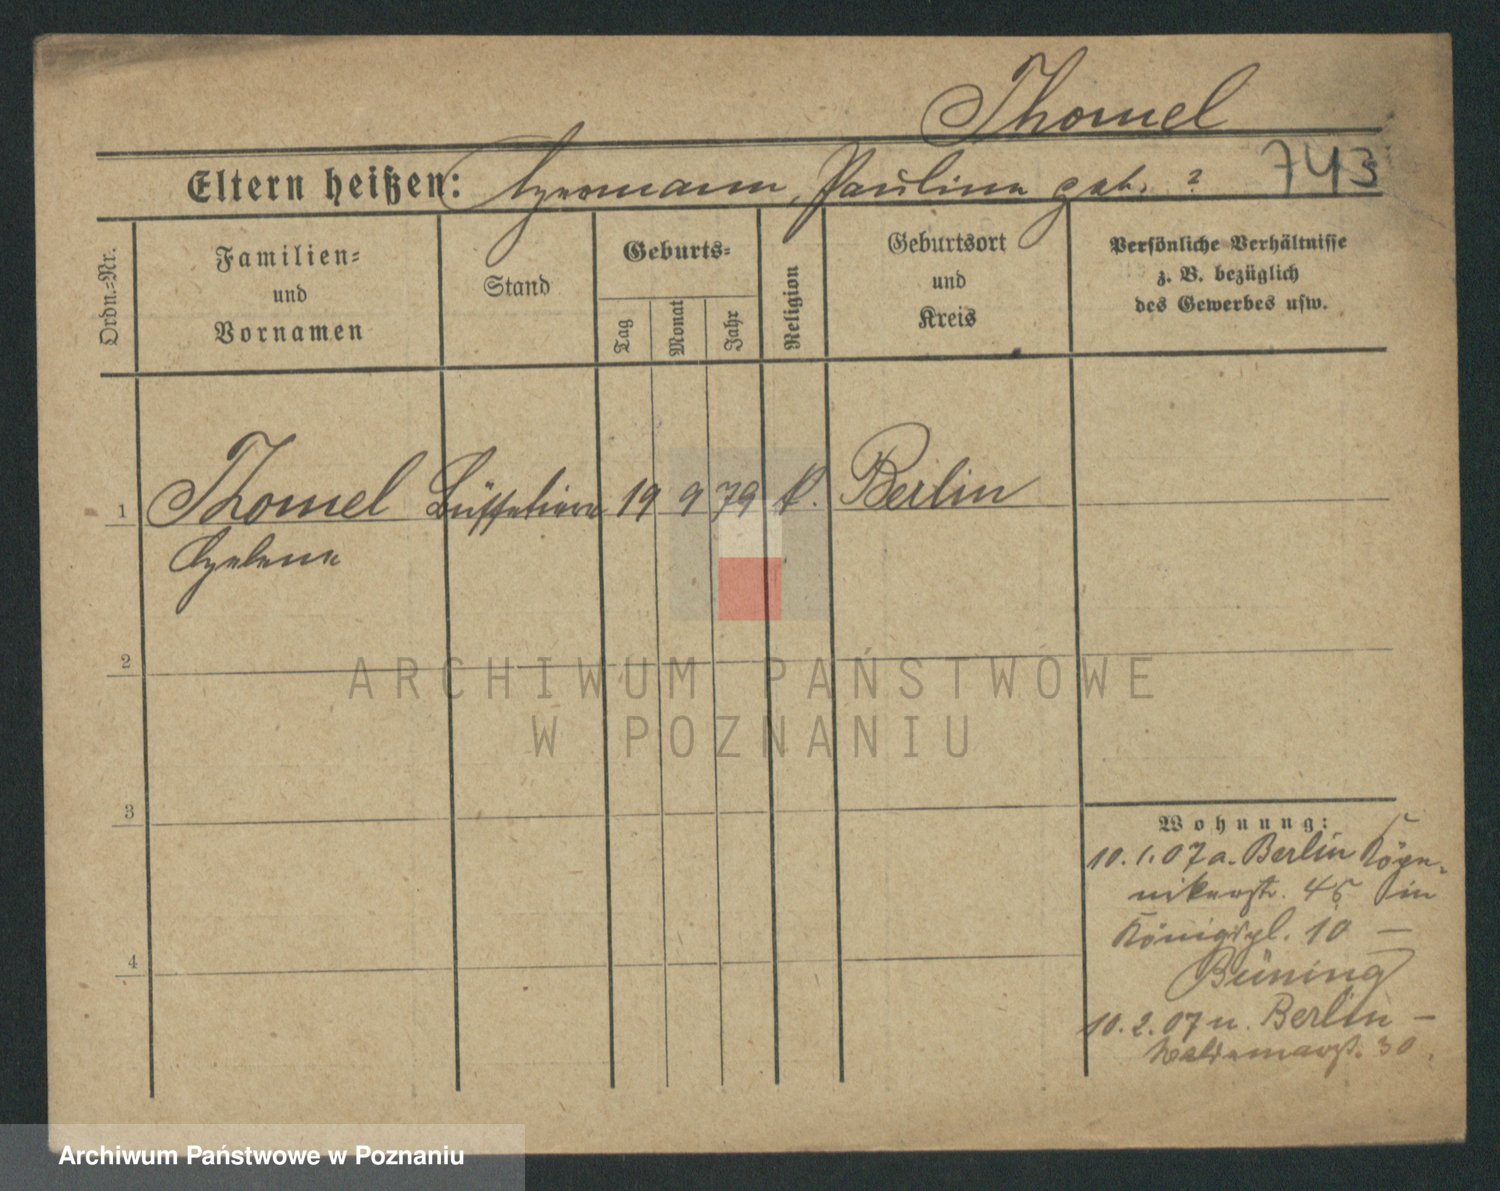 Thomel
743
Eltern heißen: Hermann, Pauline geb. ?
Ordn.-Nr.
Familien-
und
Vornamen
Stand
Geburts-
Tag
Monat
Jahr
Religion
Geburtsort
und
Kreis
Persönliche Verhältnisse
z. B. bezüglich
des Gewerbes usw.
1 Thomel Büffetiere 19 9 79 k. Berlin
Helene
2
3
4
Wohnung:
10.1.07 a. Berlin Köpe-
nikerstr. 45 in
Königspl. 10 —
Büning
10.2.07 n. Berlin —
Waldemarst. 30.
ARCHIWUM PAŃSTWOWE
W POZNANIU
Archiwum Państwowe w Poznaniu